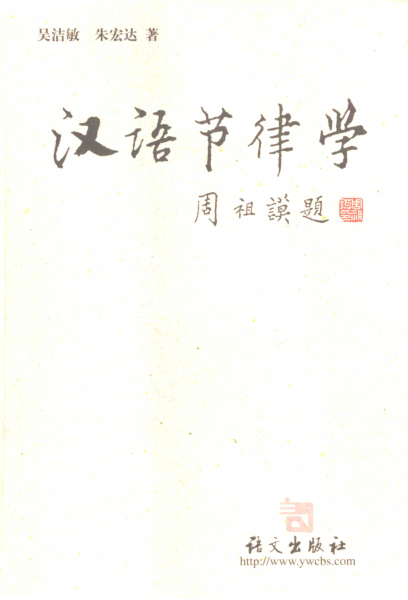 吴洁敏 朱宏达 著
汉语节律学
周祖謨题
语文出版社
http://www.ywcbs.com